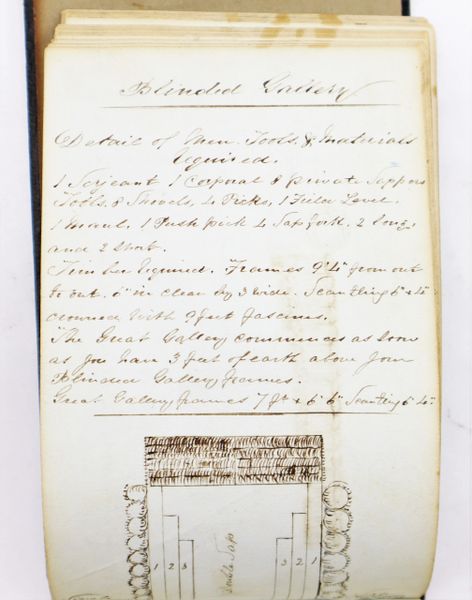 Blinded Gallery
Detail of Men. Tools, & Materials
required.
1 Serjeant 1 Corporal 8 private Sappers
Tools. 8 Shovels, 4 Picks, 1 Field Level.
1 Maul, 1 Push pick 4 Sap fork. 2 long
and 2 short.
Timber required. Frames 9'4" from out
to out. 6" in clear by 3 wide. Scantling 6" x 4"
crowned with 9 feet fascines.
The Great Gallery commences as soon
as you have 3 feet of earth above your
Blinded Gallery frames.
Great Gallery frames 7 ft x 6' 6" Scantling 6" 4"
1 2 3
Double Sap
3 2 1